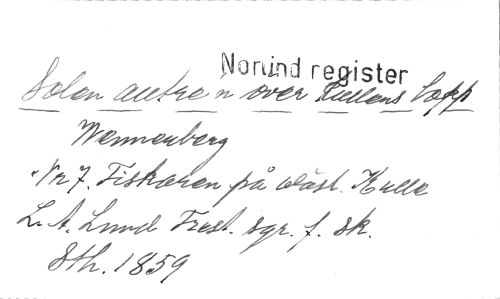 Norvind register
Solen glittre'n över Kullens topp
Wennerberg
Nr 7. Fiskaren på väst. Kulle
L. A. Lund Trest. sgr. f. sk.
Sth. 1859